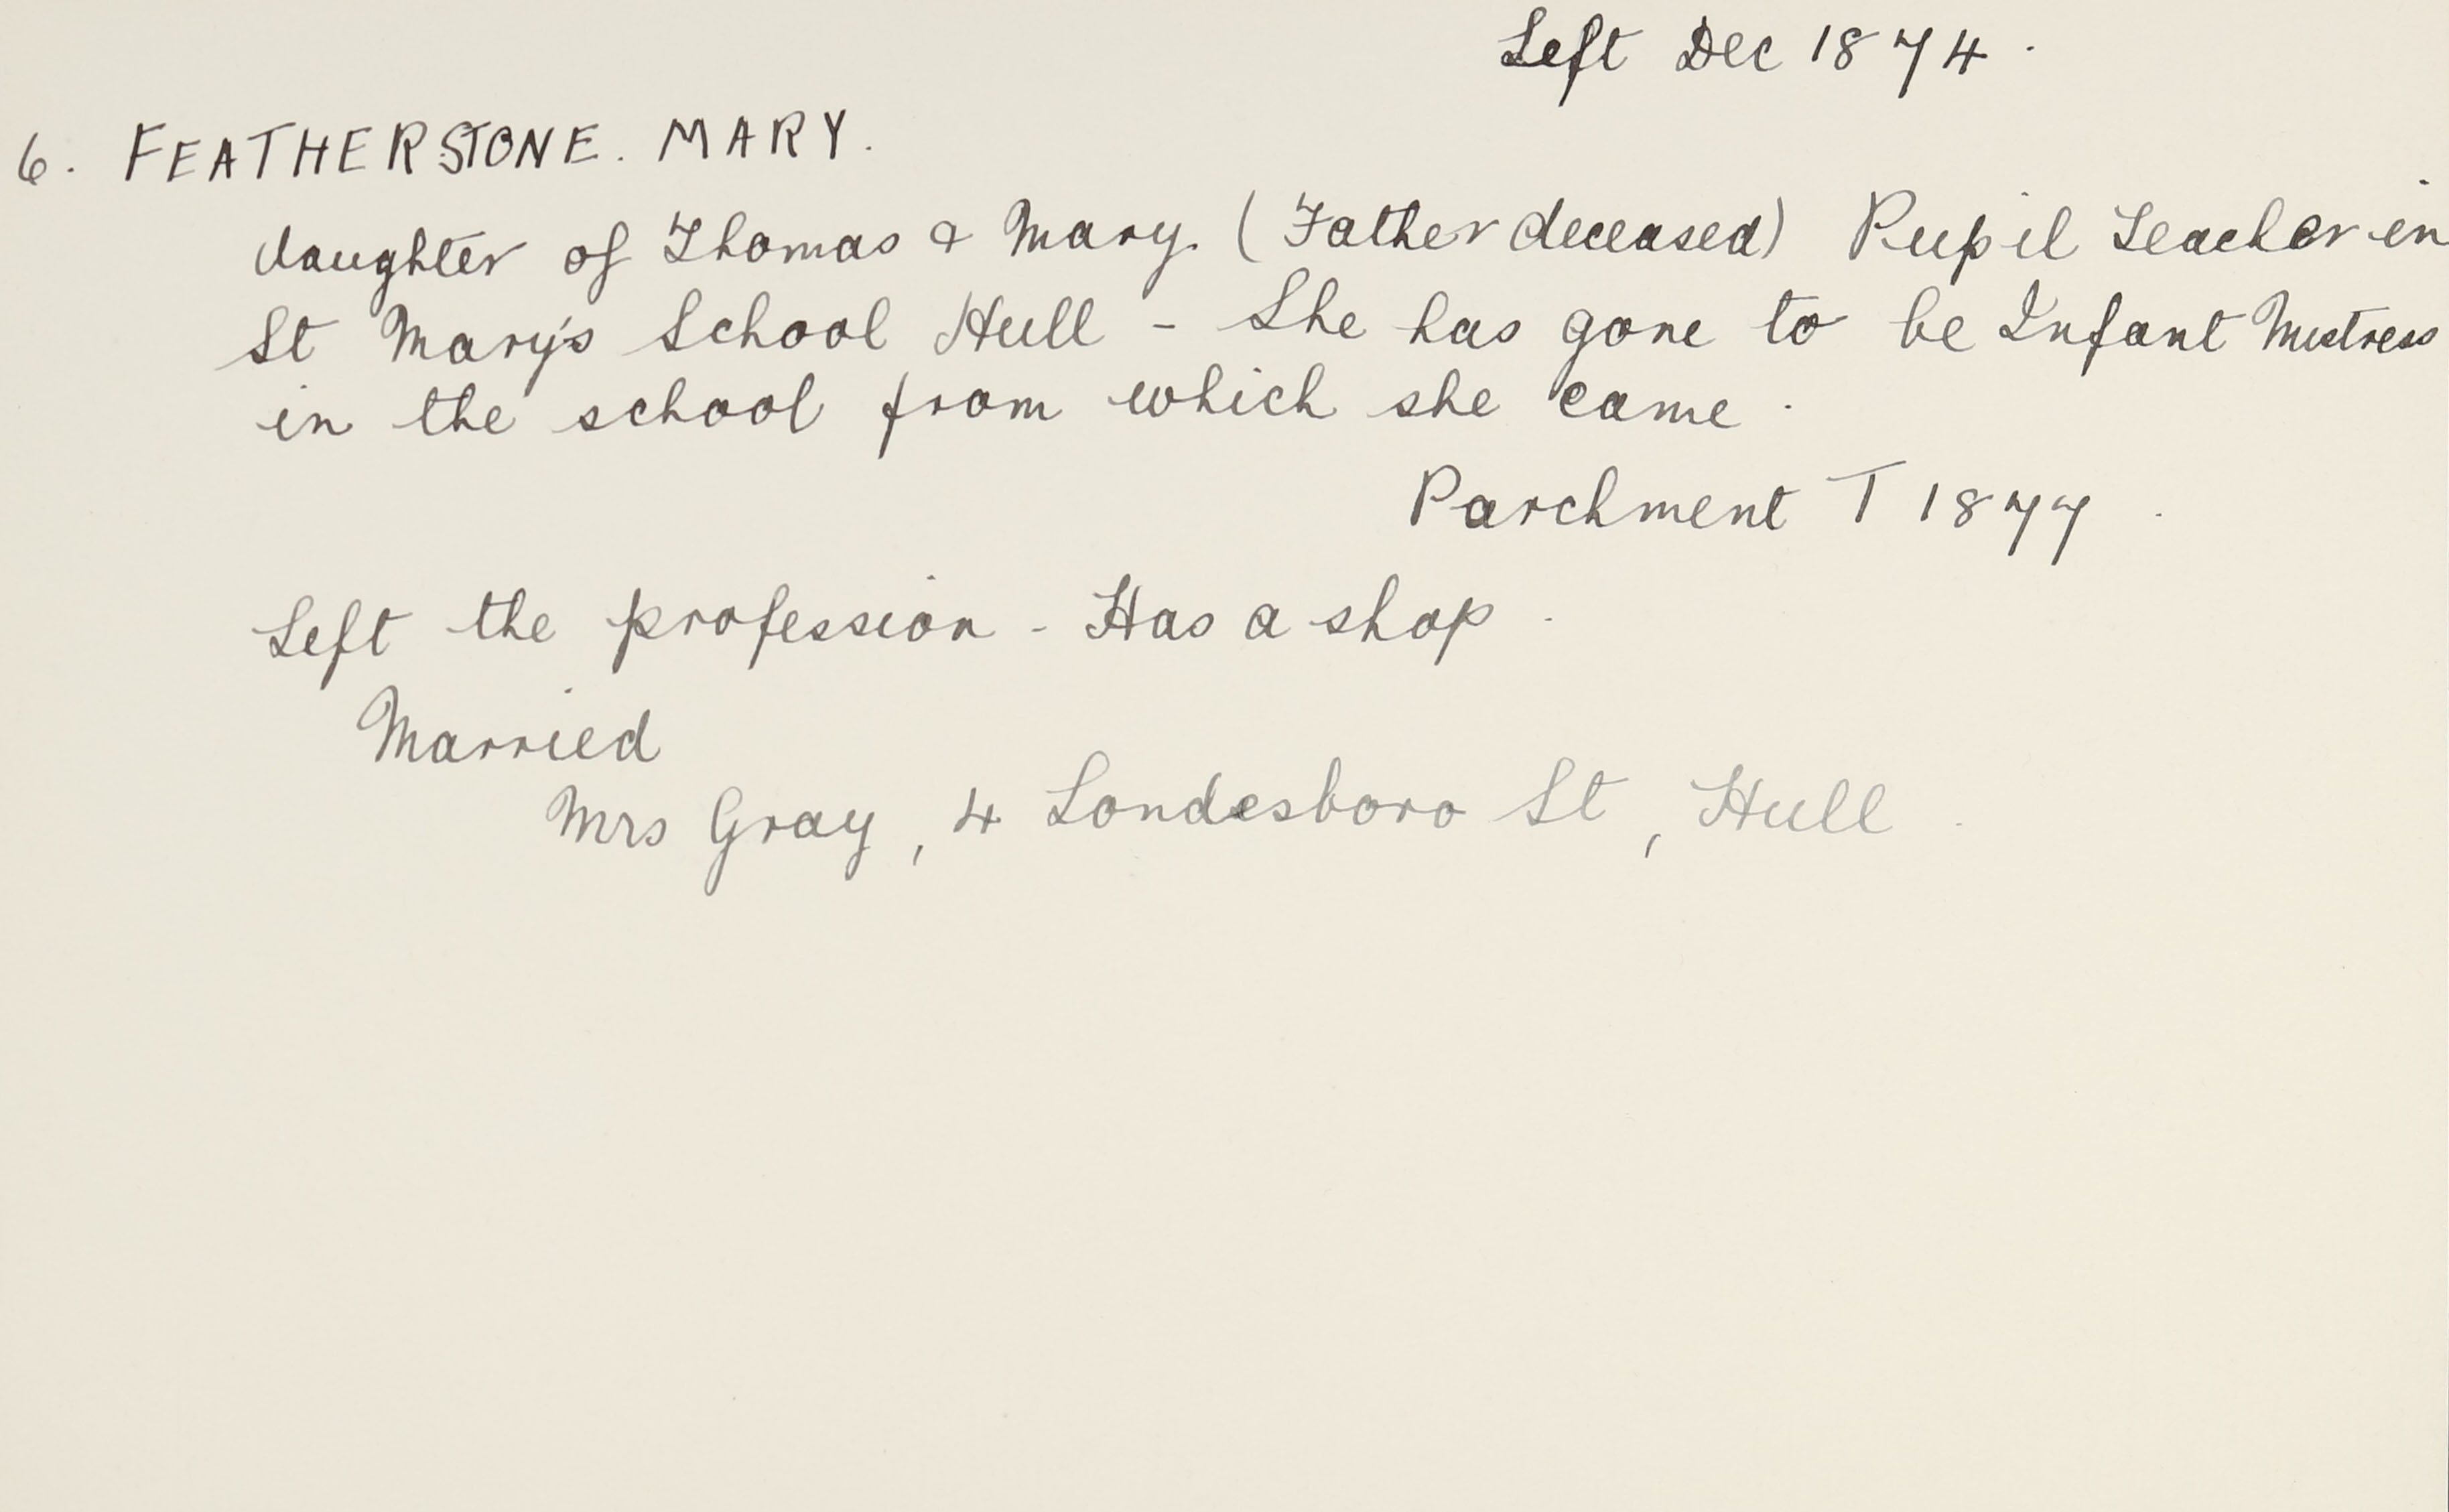 Left Dec 1874.
6. FEATHERSTONE. MARY.
daughter of Thomas & Mary. (Father deceased) Pupil Teacher in
St Mary's School Hull - She has gone to be Infant Mistress
in the school from which she came.
Parchment T 1877.
Left the profession - Has a shop.
Married
Mrs Gray, 4 Londesboro St, Hull.